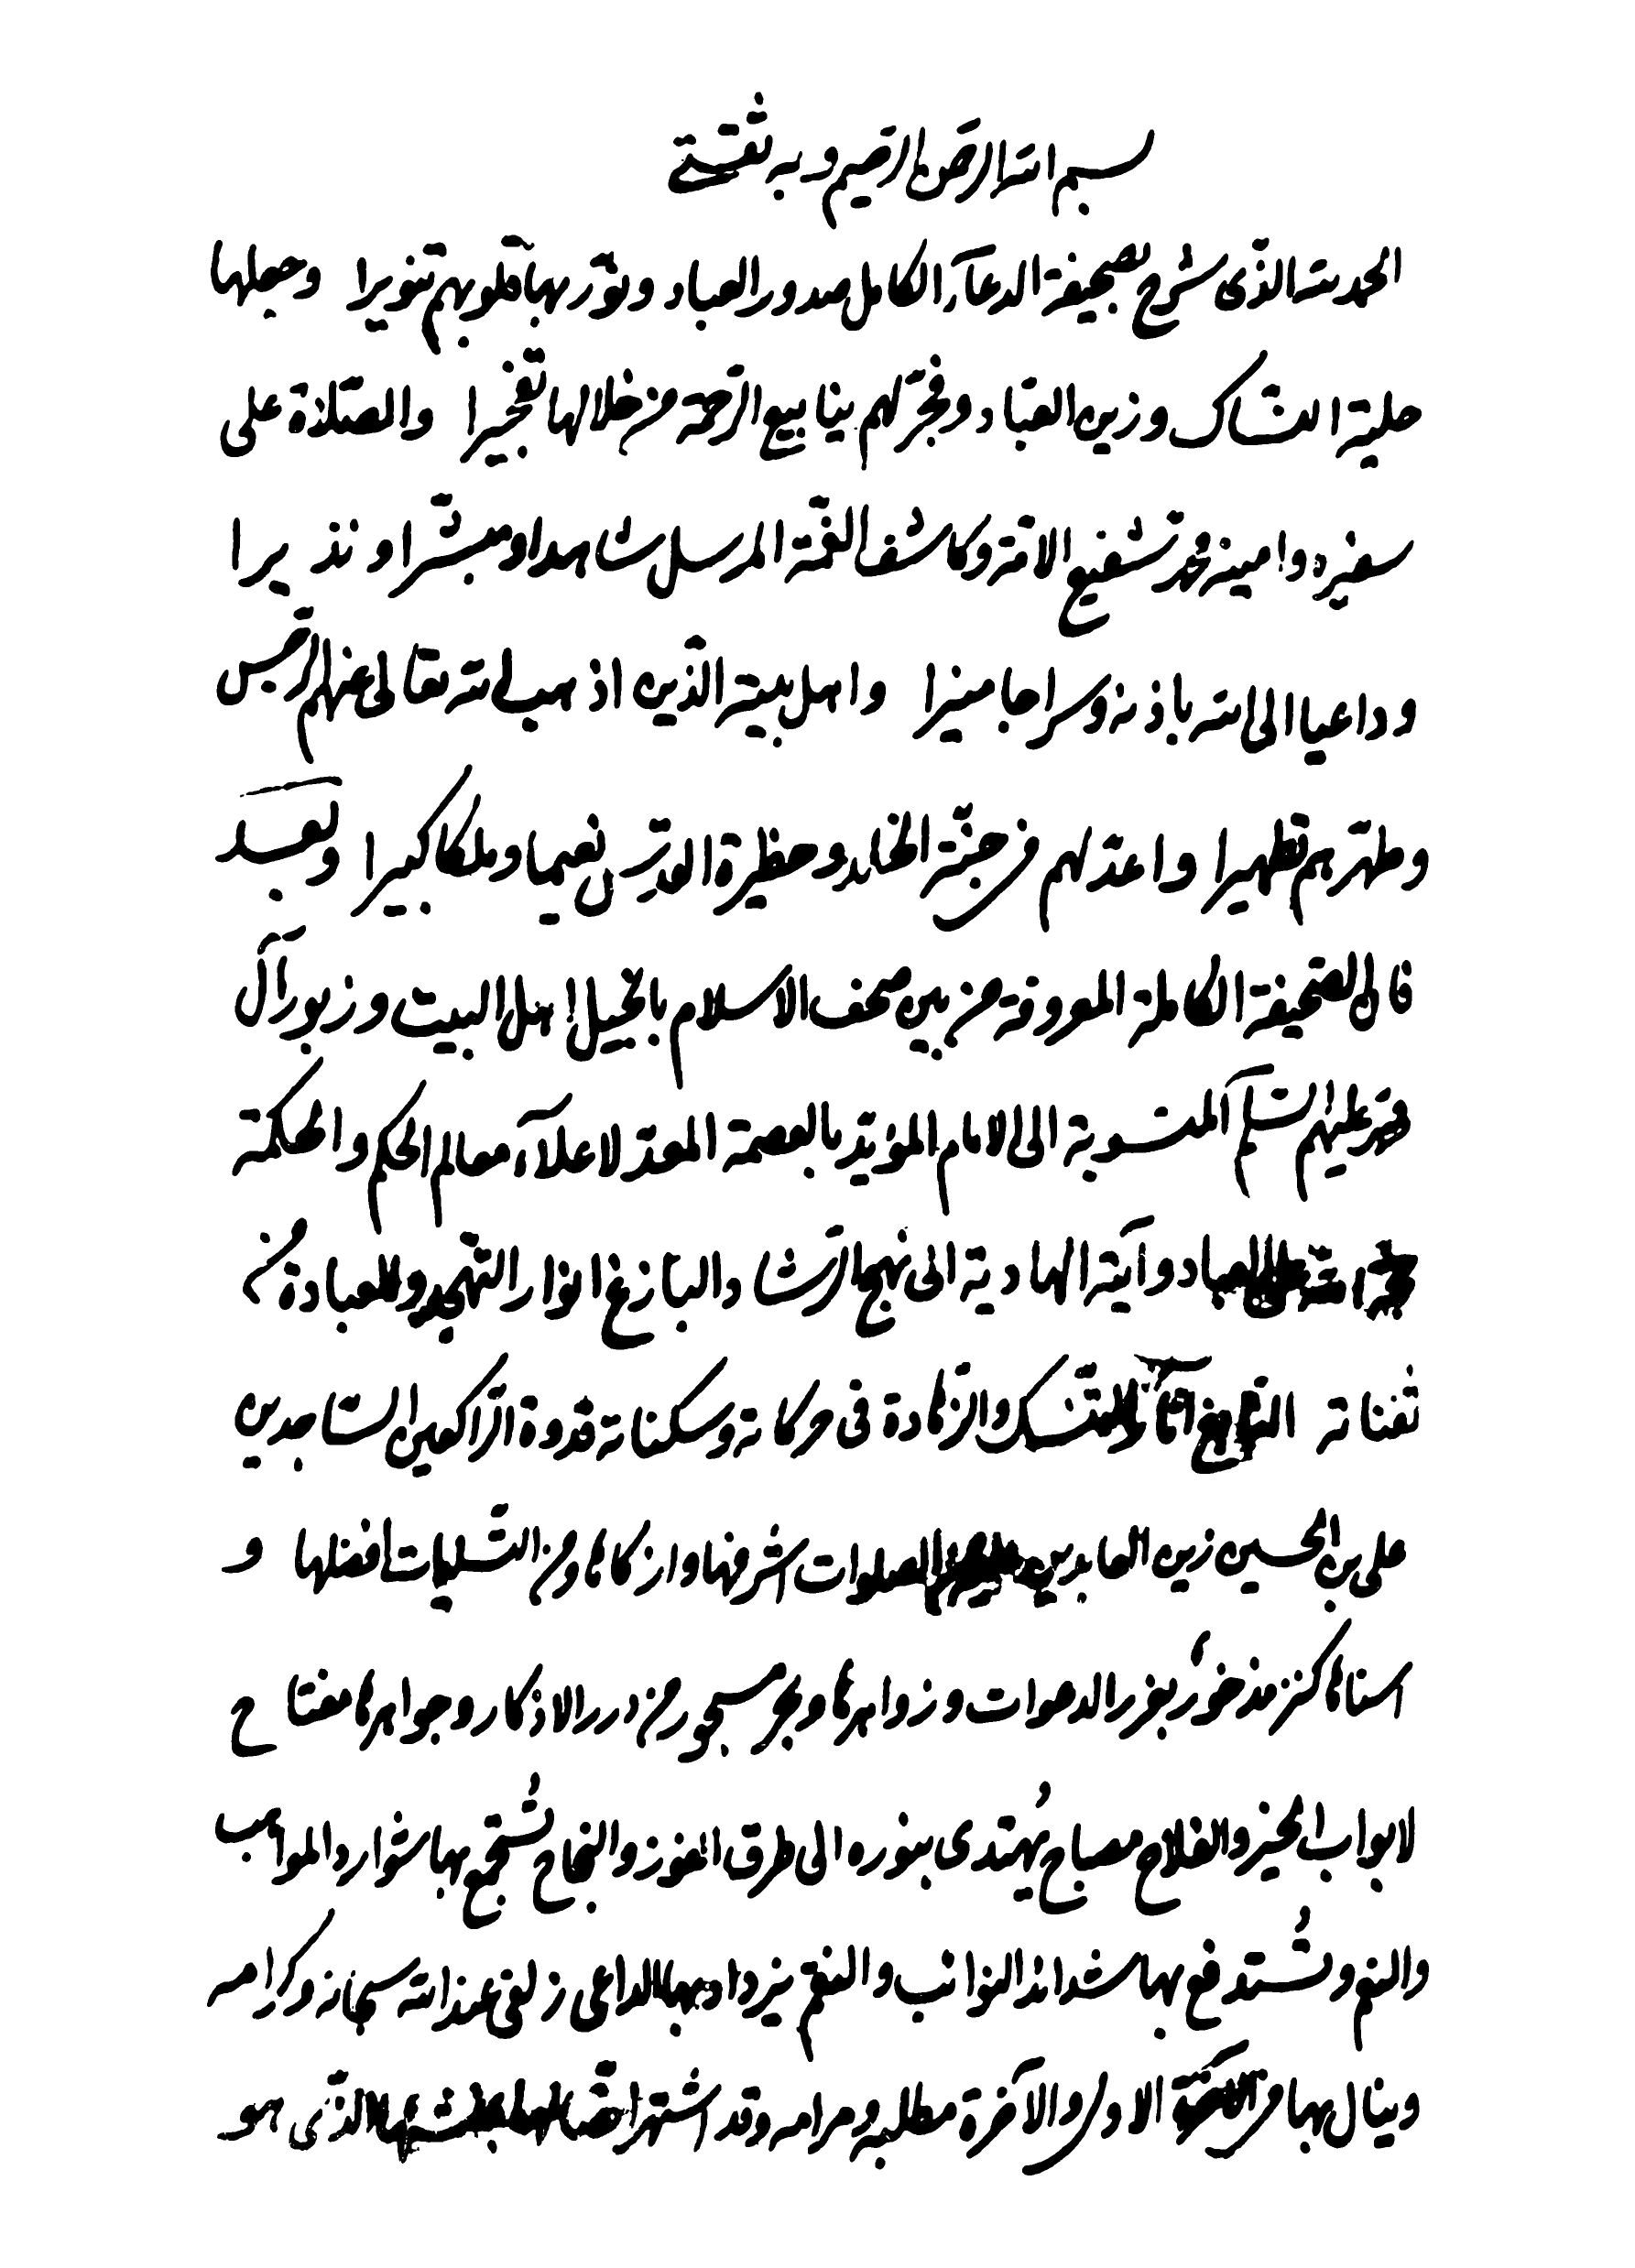 بسم الله الرحمن الرحيم وبه ثقتي
الحمد لله الذي شرح بصحيفة الدعآء الكامل صدور العباد ونوّر بها قلوبهم تنويرا وجعلها
حلية النسّاك وزين العبّاد وفجّر لهم ينابيع الرّحمة من خلالها تفجيرا والصّلاة على
سفيره وامينه محمد شفيع الامّة وكاشف الغمّة المرسل شاهدا ومبشّرا ونذيرا
وداعيا الى الله باذنه وسراجا منيرا واهل بيته الذّين اذهب الله تعالى عنهم الرّجس
وطهّرهم تطهيرا واعدّ لهم في جنّة الخلد وحظيرة القدس نعيما وملكا كبيرا وبعد
فان الصّحيفة الكاملة المعروفة من بين صحف الاسلام بانجيل اهل البيت وزبور آل
محمد عليهم السّلم المنسوبة الى الامام المؤيّد بالعصمة المعدّ لاعلآء معالم الحكم والحكمة
العباد وآيته الهادية الى نهج الرّشاد البازغ انوار التهّجد والعبادة من
ثفناته آثار التنسّك والزّهادة في حركاته وسكناته قدوة الرّاكعين السّاجدين
على بن الحسين زين العابدين الصلوات اشرفها وازكاها ومن التّسليمات افضلها و
اسناها كنز مذخورٌ بغرر الدعوات وزواهرها وبحر مسجور من درر الاذكار وجواهرها مفتاح
لابواب الخير والفلاح مصباح يُهتدى بنوره الى طرق الفوز والنجاح تُستجمع بها شوارد المواهب
والنعم وتُستدفع بها شدائد النوائب والنقم يزداد بها الداعى زلفى عند الله سبحانه وكرامه
وينال بها من الاولى والآخرة مطلبه ومرامه وقد اشتهر الذّى هو